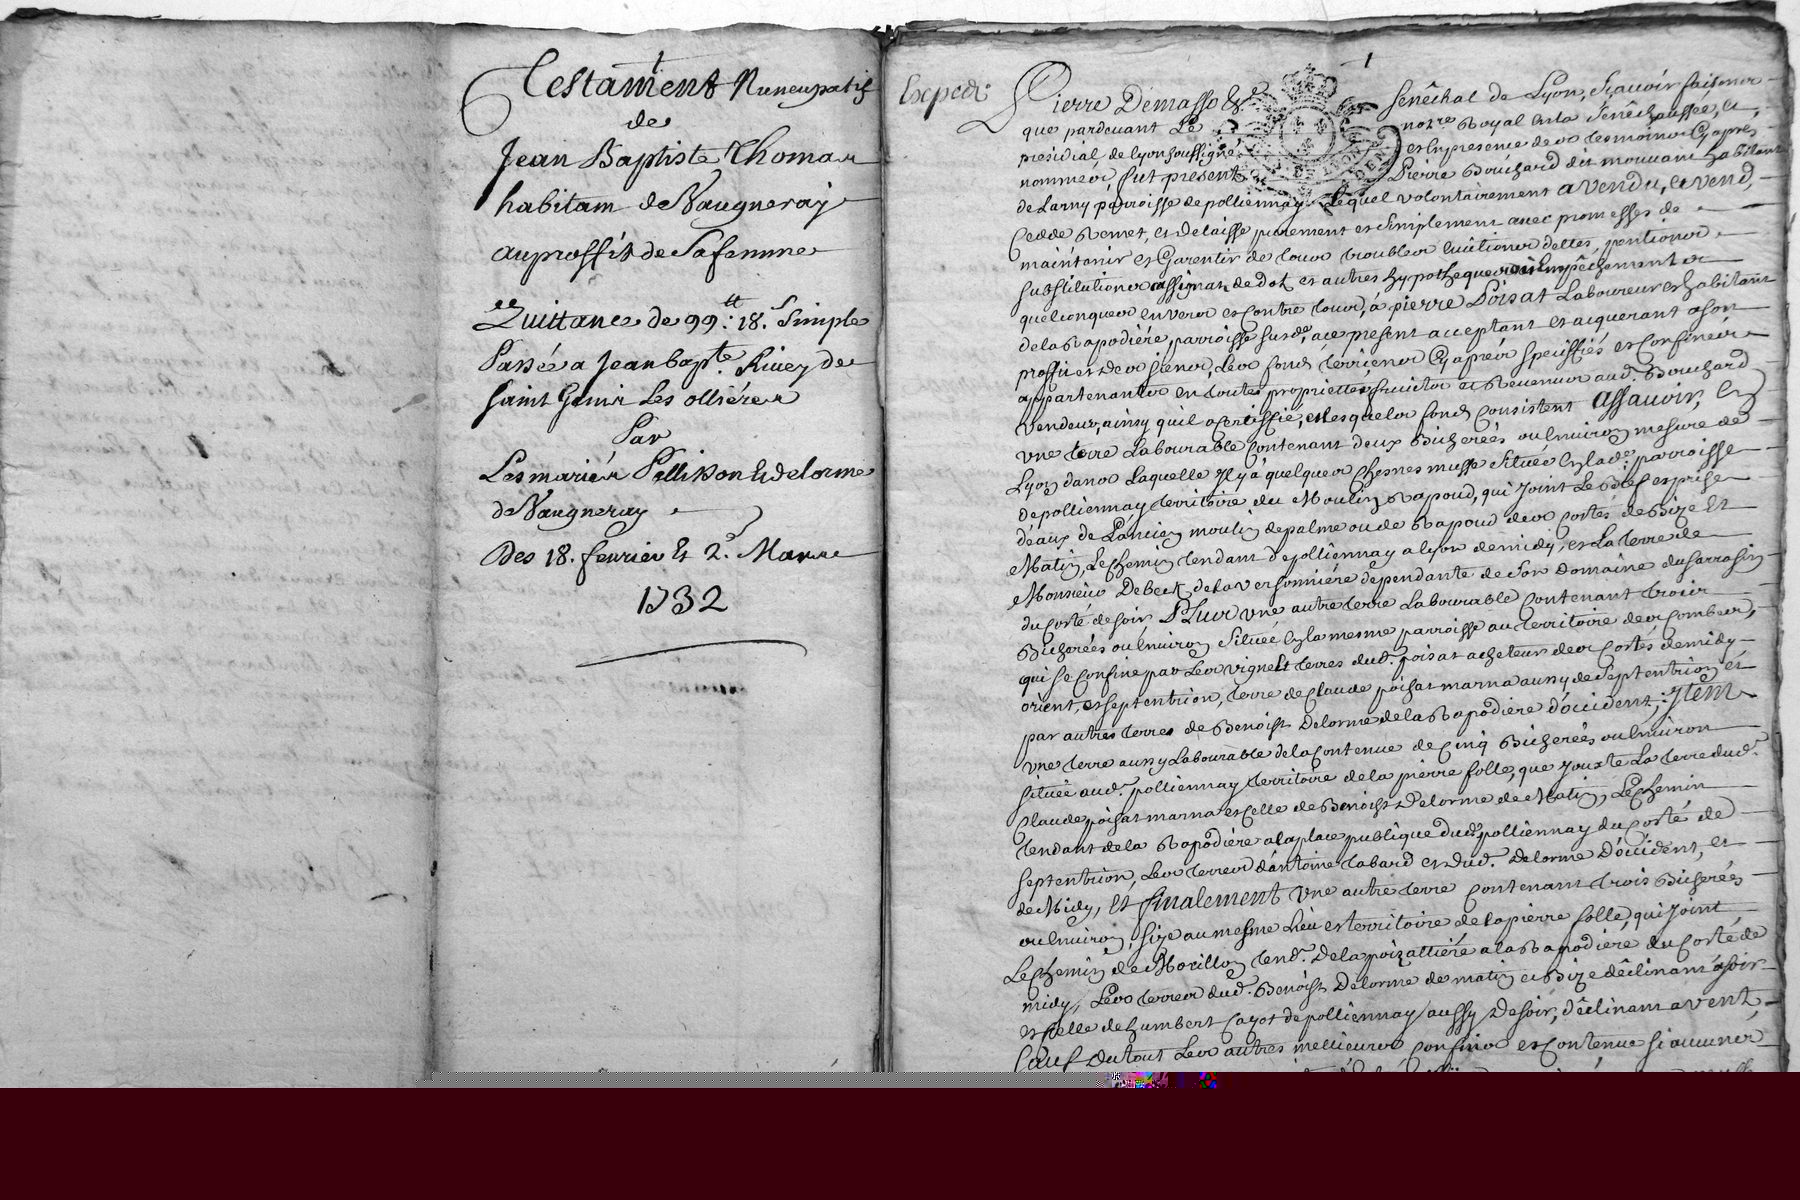 Testament Nuncupatif
de
Jean Baptiste Thomas
habitant de Vaugneray
au proffit de Sa femme
Quittance de 99.tt 18.s Simple
Passée a Jean bap.te Rivey de
Saint Genis Les ollières
Par
Les mariés Pellisson & delorme
de Vaugneray
Des 18. fevrier & 2.e Mars
1732
1
Expedié
Pierre Demasso &.a Senêchal de Lyon, Scavoir faisons
que pardevant Le no.re Royal en la Senêchaussée, &
présidial de lyon soussigné et En presence des tesmoins Cy apres
nommes, fut present Pierre Bouchard du mouvant habitant
de Larny parroisse de polliennay Lequel volontairement a vendu, et vend,
Cedde Remet, et delaisse purement et Simplement avec promesses de
maintenir et Garentir de tous troubles Evictions dettes, pentions
Substitutions assignas de dot et autres hypotheques ou Empêchements
quelconques envers et Contre tous, à pierre Poisat Laboureur et habitant
de la Rapodière, parroisse Susd.e ace present acceptant et acquerant a son
proffit et des siens, Les fonds terriens Cy après Speciffiés et Confinés
appartenants en toutes proprietés fruicts et Revenus aud. Bouchard
Vendeur, ainsy quil a Certiffié, et lesquels fonds Consistent Assavoir, En
une terre Labourable Contenant deux Bicherées ou Environ mesure de
Lyon dans Laquelle Il y a quelques Chesnes Située En lad.e parroisse
de polliennay territoire du Moulin Rapoud, qui Joint Le Bief et prise
deaux de Lancien moulin de palme ou de Rapoud des Costés de Bize Et
Matin, Le Chemin tendant de polliennay a lyon de midy, et La terre de
Monsieur Debeck de la Versonnière dependante de Son Domaine du Sarrasin
du Costé de soir. Plus une autre terre Labourable Contenant trois
Bicherées ou Environ Située En la mesme parroisse au territoire des Combes,
qui se Confine par Les vigne et terres dud. poisat acheteur des Costés de midy
orient, et septentrion, terre de Claude poisat marna aussy de septentrion et
par autres terres de Benoist Delorme de la Rapodière d'occident; Item
une terre aussy Labourable de la Contenue de Cinq Bicherées ou Environ
située aud. polliennay territoire de la pierre folle, que Jouxte La terre dud.
Claude poisat marna et Celle de Benoist Delorme de Matin, Le Chemin
tendant de la Rapodière a la place publique dud. polliennay du Costé de
septentrion, Les terres d'antoine tabard et dud. Delorme D'occident, et
de Midy, Et finalement une autre terre Contenant trois Bicherées
ou Environ, size au mesme Lieu et territoire de la pierre folle, qui Joint
Le Chemin de Morillon tend.t De la poizattière a la Rapodière du Costé de
midy, Les terres dud. Benoist Delorme de matin et Bize dêclinant a soir
et Celle de humbert Cayot de polliennay aussy De soir, dêclinant a vent
Sauf du tout Les autres meilleurs Confins et Contenue si aucuns